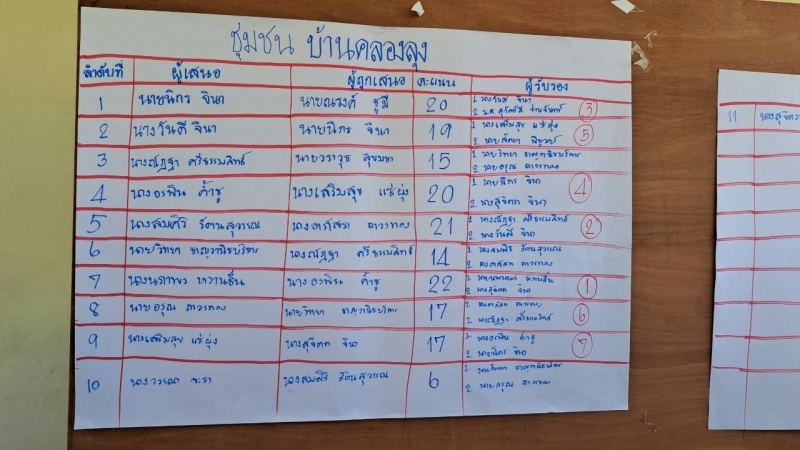 ชุมชน บ้านคลองลุง
ลำดับที่ ผู้เสนอ ผู้ถูกเสนอ คะแนน ผู้รับรอง
1 นายนิกร จินา นายณรงค์ ชูมี 20 1 นางวันดี จินา ③
2 น.ส.
2 นางวันดี จินา นายนิกร จินา 19 1 นางเสริมสุข แซ่ยุ่ง ⑤
2 นาย
3 นางณัฏฐา ศรีธรรมสิทธ์ นายวราวุธ สุขมาก 15 1 นายวิทยา ชาญวานิชบริการ
2 นายอรุณ ถาวรทอง
4 นางอรพิน ค้ำชู นางเสริมสุข แซ่ยุ่ง 20 1 นายนิกร จินา ④
2 นางสุจิตต จินา
5 นางสมศิริ รัตนสุวรรณ นางอารีสรา ถาวรทอง 21 1 นางณัฏฐา ศรีธรรมสิทธ์ ②
2 นางวันดี จินา
6 นายวิทยา ชาญวานิชบริการ นางณัฏฐา ศรีธรรมสิทธ์ 14 1 รัตนสุวรรณ
2 ถาวรทอง
7 หวานชื่น นางอรพิน ค้ำชู 22 1 หวานชื่น ①
2 นางสุจิตต จินา
8 นายอรุณ ถาวรทอง นายวิทยา ชาญวานิชบริการ 17 1 ถาวรทอง ⑥
2 นางณัฏฐา ศรีธรรมสิทธ์
9 นางเสริมสุข แซ่ยุ่ง นางสุจิตต จินา 17 1 นางอรพิน ค้ำชู ⑦
2 นายนิกร จินา
10 นางวรรณา นางสมศิริ รัตนสุวรรณ 6 1 นายวิทยา ชาญวานิชบริการ
2 นายอรุณ ถาวรทอง
11